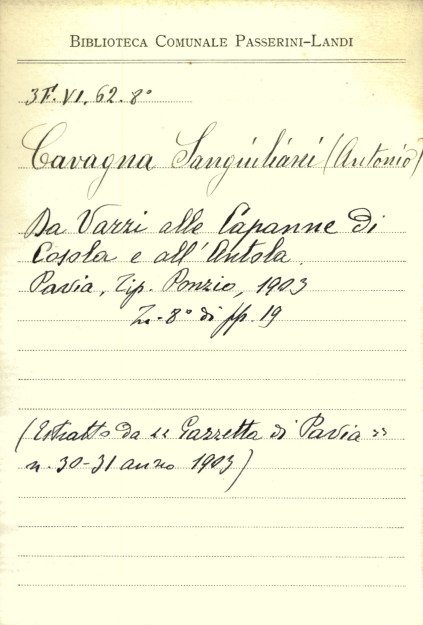 BIBLIOTECA COMUNALE PASSERINI-LANDI
3F. VI. 62. 8°
Cavagna Sangiuliani (Antonio)
Da Varzi alle Capanne di
Cosola e all'Antola.
Pavia, Tip. Ponzio, 1903
In-8° di pp. 19
(Estratto da "Gazzetta di Pavia"
n. 30-31 anno 1903)